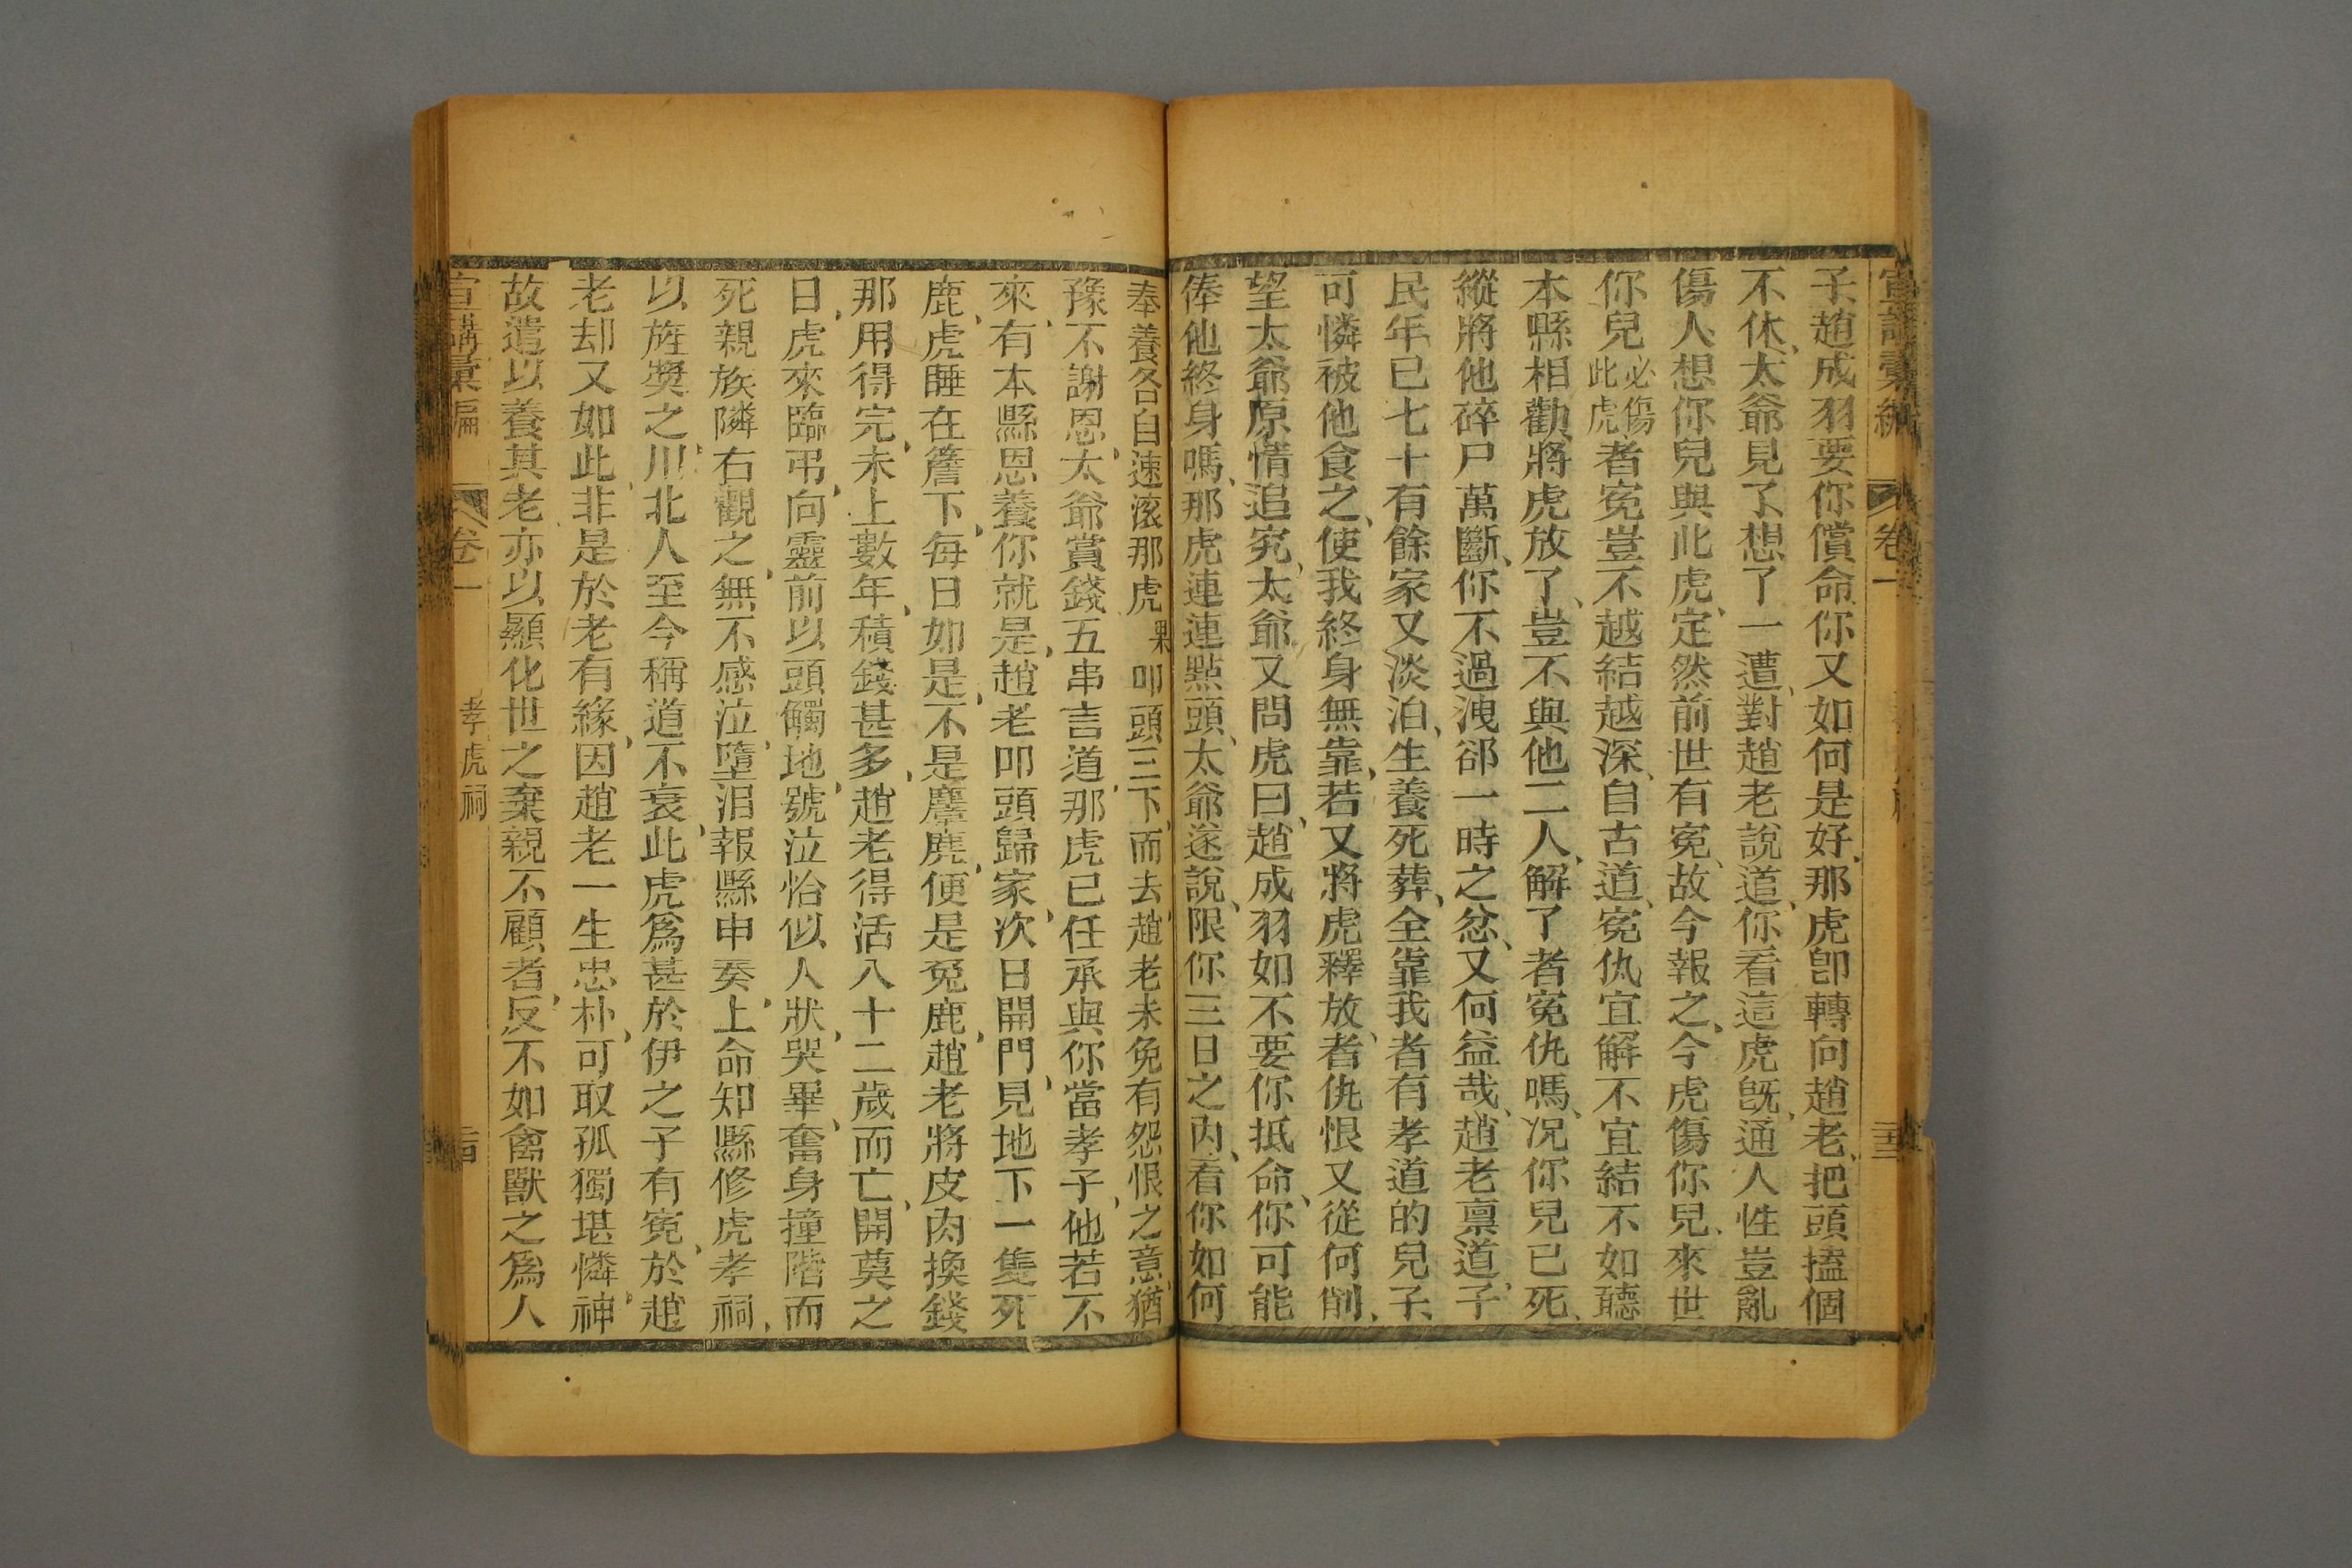 宣講彙編 卷一
子趙成羽要你償命你又如何是好、那虎卽轉向趙老、把頭搕個
不休、太爺見了、想了一遭、對趙老說道、你看這虎旣通人性豈亂
傷人想你兒與此虎、定然前世有寃、故今報之、今虎傷你兒、來世
你兒必傷此虎者寃豈不越結越深、自古道、寃仇宜解不宜結不如聽
本縣相勸、將虎放了、豈不與他二人、解了者寃仇嗎、况你兒已死、
縱將他碎尸萬斷、你不過洩郤一時之忿、又何益哉、趙老禀道、子
民年已七十有餘家又淡泊、生養死葬、全靠我者有孝道的兒子、
可憐被他食之、使我終身無靠、若又將虎釋放、者仇恨又從何削、
望太爺原情追究、太爺又問虎曰、趙成羽如不要你抵命、你可能
俸他終身嗎、那虎連連點頭、太爺遂說、限你三日之內、看你如何
奉養各自速滚那虎果叩頭三下、而去趙老未免有怨恨之意、猶
豫不謝恩、太爺賞錢五串言道、那虎已任承與你當孝子、他若不
來、有本縣恩養你就是、趙老叩頭歸家、次日開門、見地下一隻死
鹿、虎睡在簷下、每日如是、不是麞麂、便是兔鹿、趙老將皮肉換錢
那用得完、未上數年、積錢甚多、趙老得活八十二歲而亡、開奠之
日、虎來臨弔、向靈前以頭觸地、號泣恰似人狀、哭畢、奮身撞階而
死親族隣右觀之、無不感泣、墮泪報縣申奏、上命知縣修虎孝祠、
以旌獎之、川北人至今稱道不衰、此虎爲甚於伊之子有寃、於趙
老却又如此、非是於老有緣、因趙老一生忠朴、可取孤獨堪憐、神
故遣以養其老、亦以顯化世之棄親不顧者、反不如禽獸之爲人
宣講彙編 卷一 孝虎祠